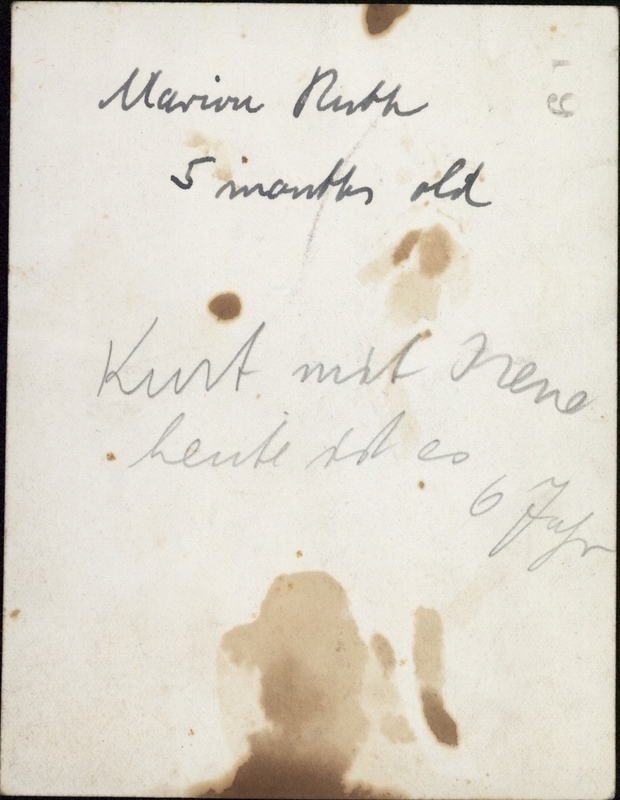 Marion Ruth
5 months old
Kurt mit Irene
heute ist es
6 Jahr